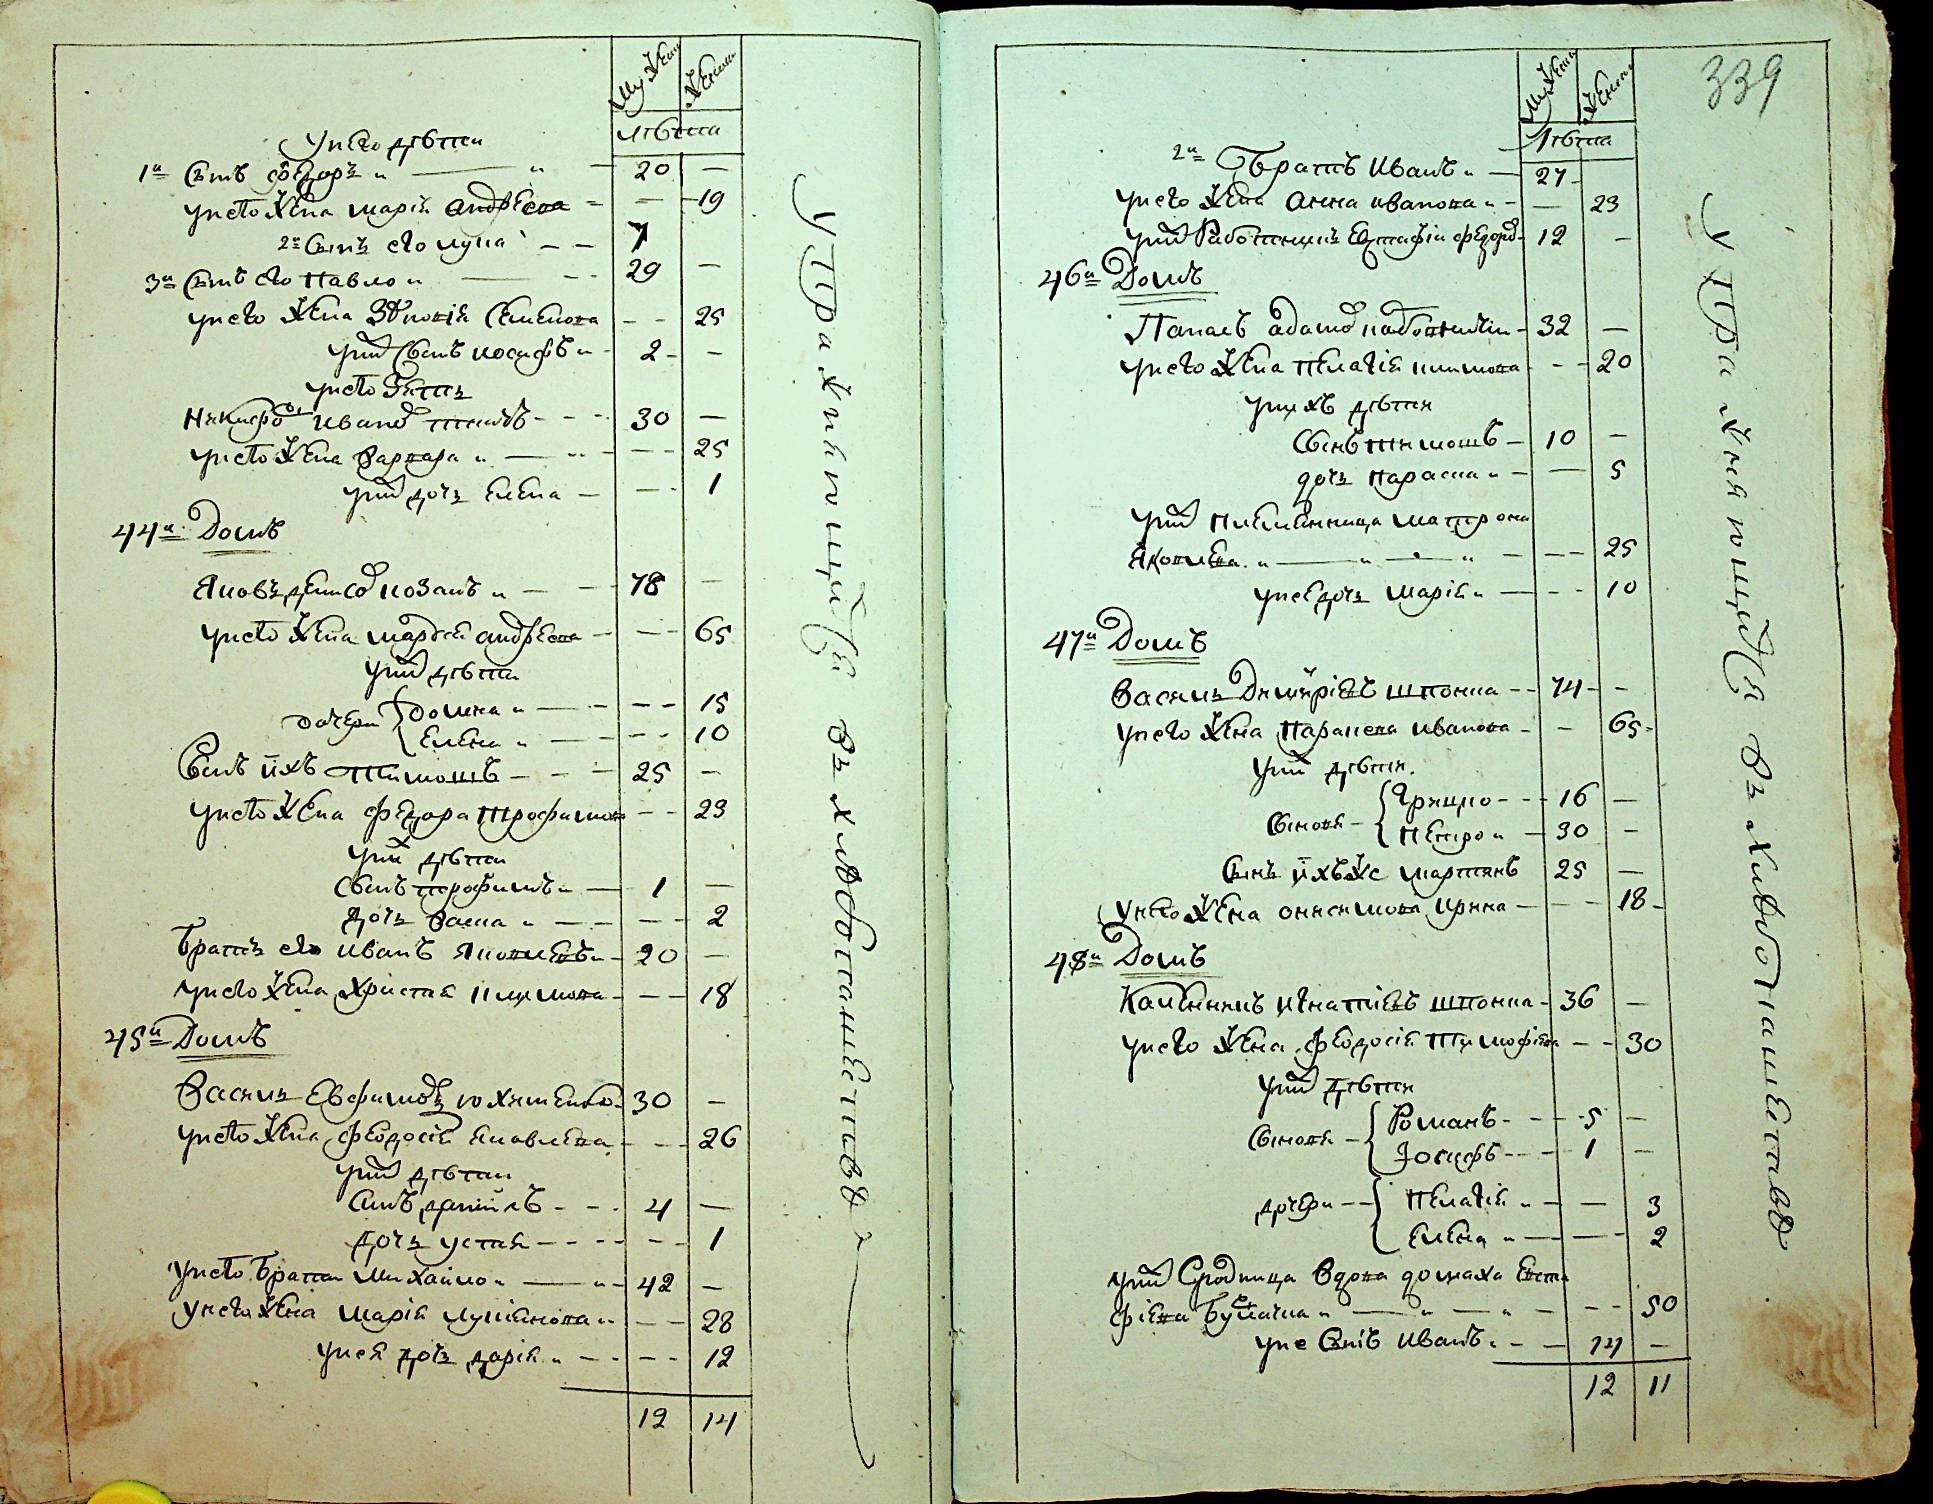 Мужеска Женска
Лѣта
У него дѣти
1й Сынъ Федоръ „ — „ — 20 —
У него жена Мария Андреева — — 19
2й Сынъ его Лука — — 7
3й Сынъ его Павло „ — — 29 —
У него жена Зѣновія Семенова — — 25
У них Сынъ Иосифъ „ — 2 —
У него Зять
Никифоръ Иванов — 30 —
У него жена Варвара „ — — — 25
У них дочь Елена — — 1
44й Домъ
Яковъ Денисов Козакъ „ — — 78 —
У него жена Марфа Андреева — — 65
У них дѣти
Дочери { Домна „ — — — 15
Елена „ — — — 10
Сынъ ихъ Тимошъ — — — 25 —
У него жена Федора Трофимова — — 23
У них дѣти
Сынъ Трофимъ „ — 1 —
Дочь Васса „ — — — 2
Братъ его Иванъ Яковлевъ „ — 20 —
У него жена Христія — — 18
45й Домъ
Василь Евфимов Юхименко — 30 —
У него жена Феодосія Яковлева — — 26
У них дѣти
Сынъ Даніилъ — — 4 —
Дочь Устья — — — — 1
У него братъ Михайло „ — „ — 42 —
У него жена Марія Лукіянова „ — — 28
У нея дочь Дарія „ — — — 12
12 14
У Пражинющейся въ хлѣбопашествѣ
339
Мужеска Женска
Лѣта
2й Братъ Иванъ „ — 27 —
У него жена Анна Иванова „ — — 23
У них Работникъ Евстафій Федоров — 12 —
46й Домъ
Панасъ Адамов — 32 —
У него жена Пелагія — — 20
У нихъ дѣти
Сынъ Тимошъ — 10 —
дочь Параска „ — — 5
У них племѣнница Матрона
Яковлева „ — „ — „ — — — 25
У нее дочь Марія „ — — — 10
47й Домъ
Василь Димитріевъ Шпонка — — 74 —
У него жена Параскева Иванова — — 65
У них дѣти
Сыновя — { Грицко — — 16 —
Петро „ — 30 —
Сынъ ихъ же Мартинъ 25 —
У него жена Онисимова Ирина — — — 18
48й Домъ
Калѣникъ Игнатіевъ Шпонка — 36 —
У него жена Феодосія Тимофѣева — — 30
У них дѣти
Сыновя — { Романъ — — 5 —
Іосифъ — — — 1 —
дочери — — { Пелагія „ — — 3
Елена „ — — — 2
У них Сродница вдова Домаха Евста
фіева „ — „ — „ — — — 50
У нее Сынъ Иванъ „ — — 14 —
12 11